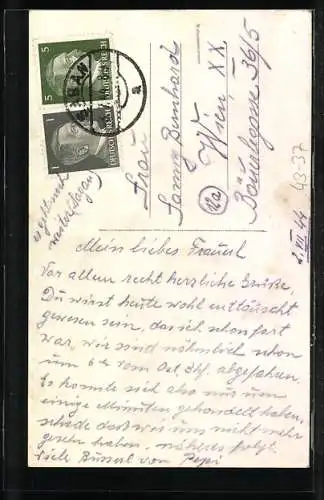 5 5
DEUTSCHES REICH
1
DEUTSCHES REICH
Frau
Fanny Bernhard
Wien XX.
12a
Bäuerlegasse 36/5
43-37
es geht noch
weiter
2. VII. 44
Mein liebes Frauerl
Vor allem recht herzliche Grüße.
Du wirst heute wohl enttäuscht
gewesen sein, das ich schon fort
war, wir sind nähmlich schon
um 6h vom Ost. Bhf. abgefahren.
Es konnte sich also nur um
einige Minuten gehandelt haben,
schade daß wir uns nicht mehr
gesehn haben. näheres folgt.
Viele Busserl von Pepi